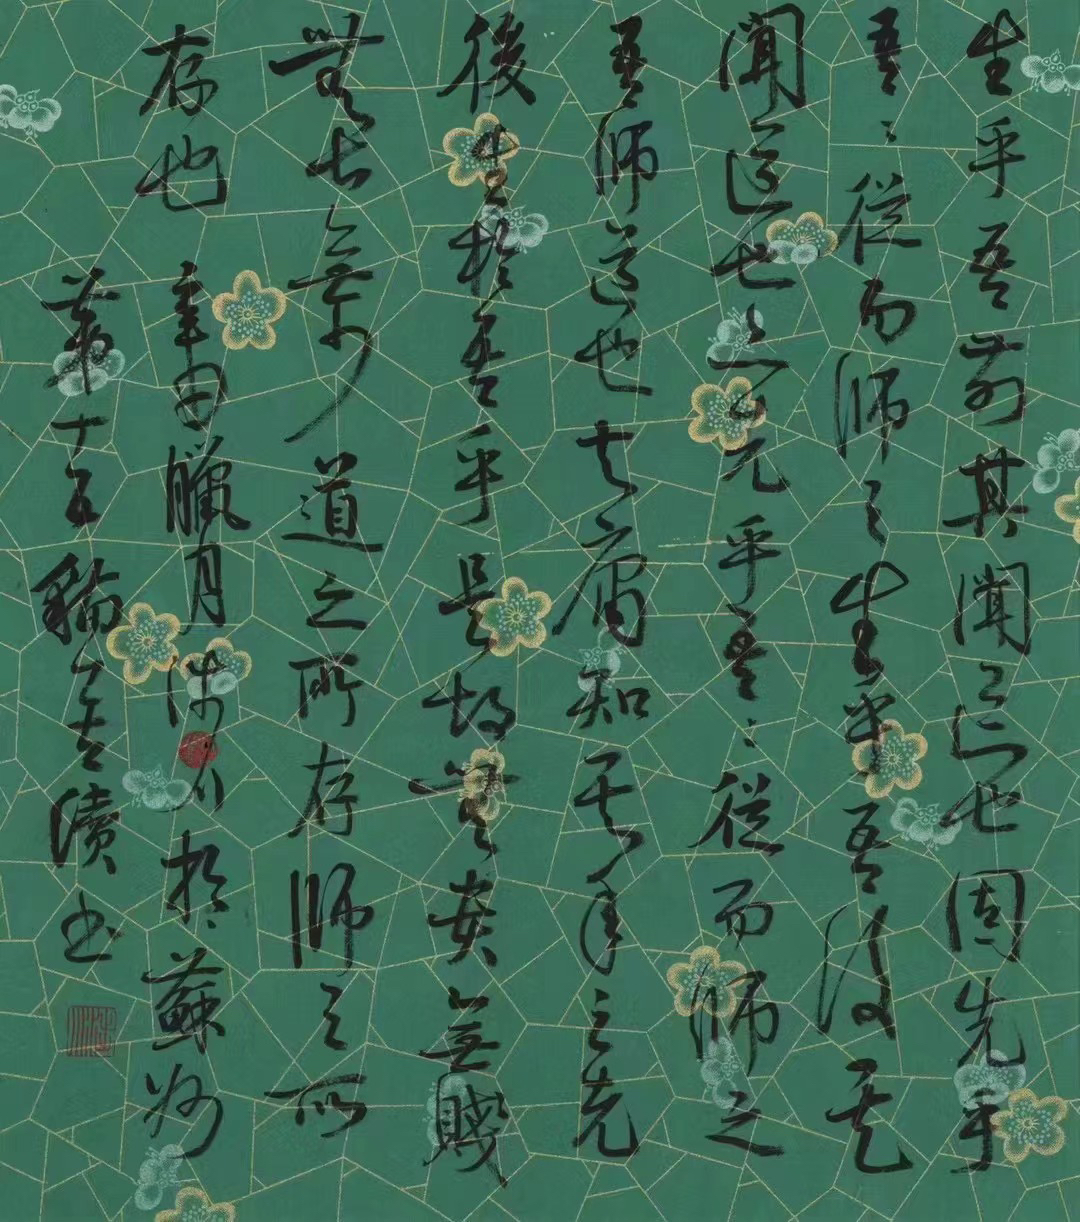 生乎吾前其聞道也固先乎
吾〻從而師之生乎吾後其
聞道也亦先乎吾〻從而師之
吾師道也夫庸知其年之先
後生於吾乎是故無貴無賤
無長無少道之所存師之所
存也 辛丑臘月沛川於蘇州
第十五輪 書